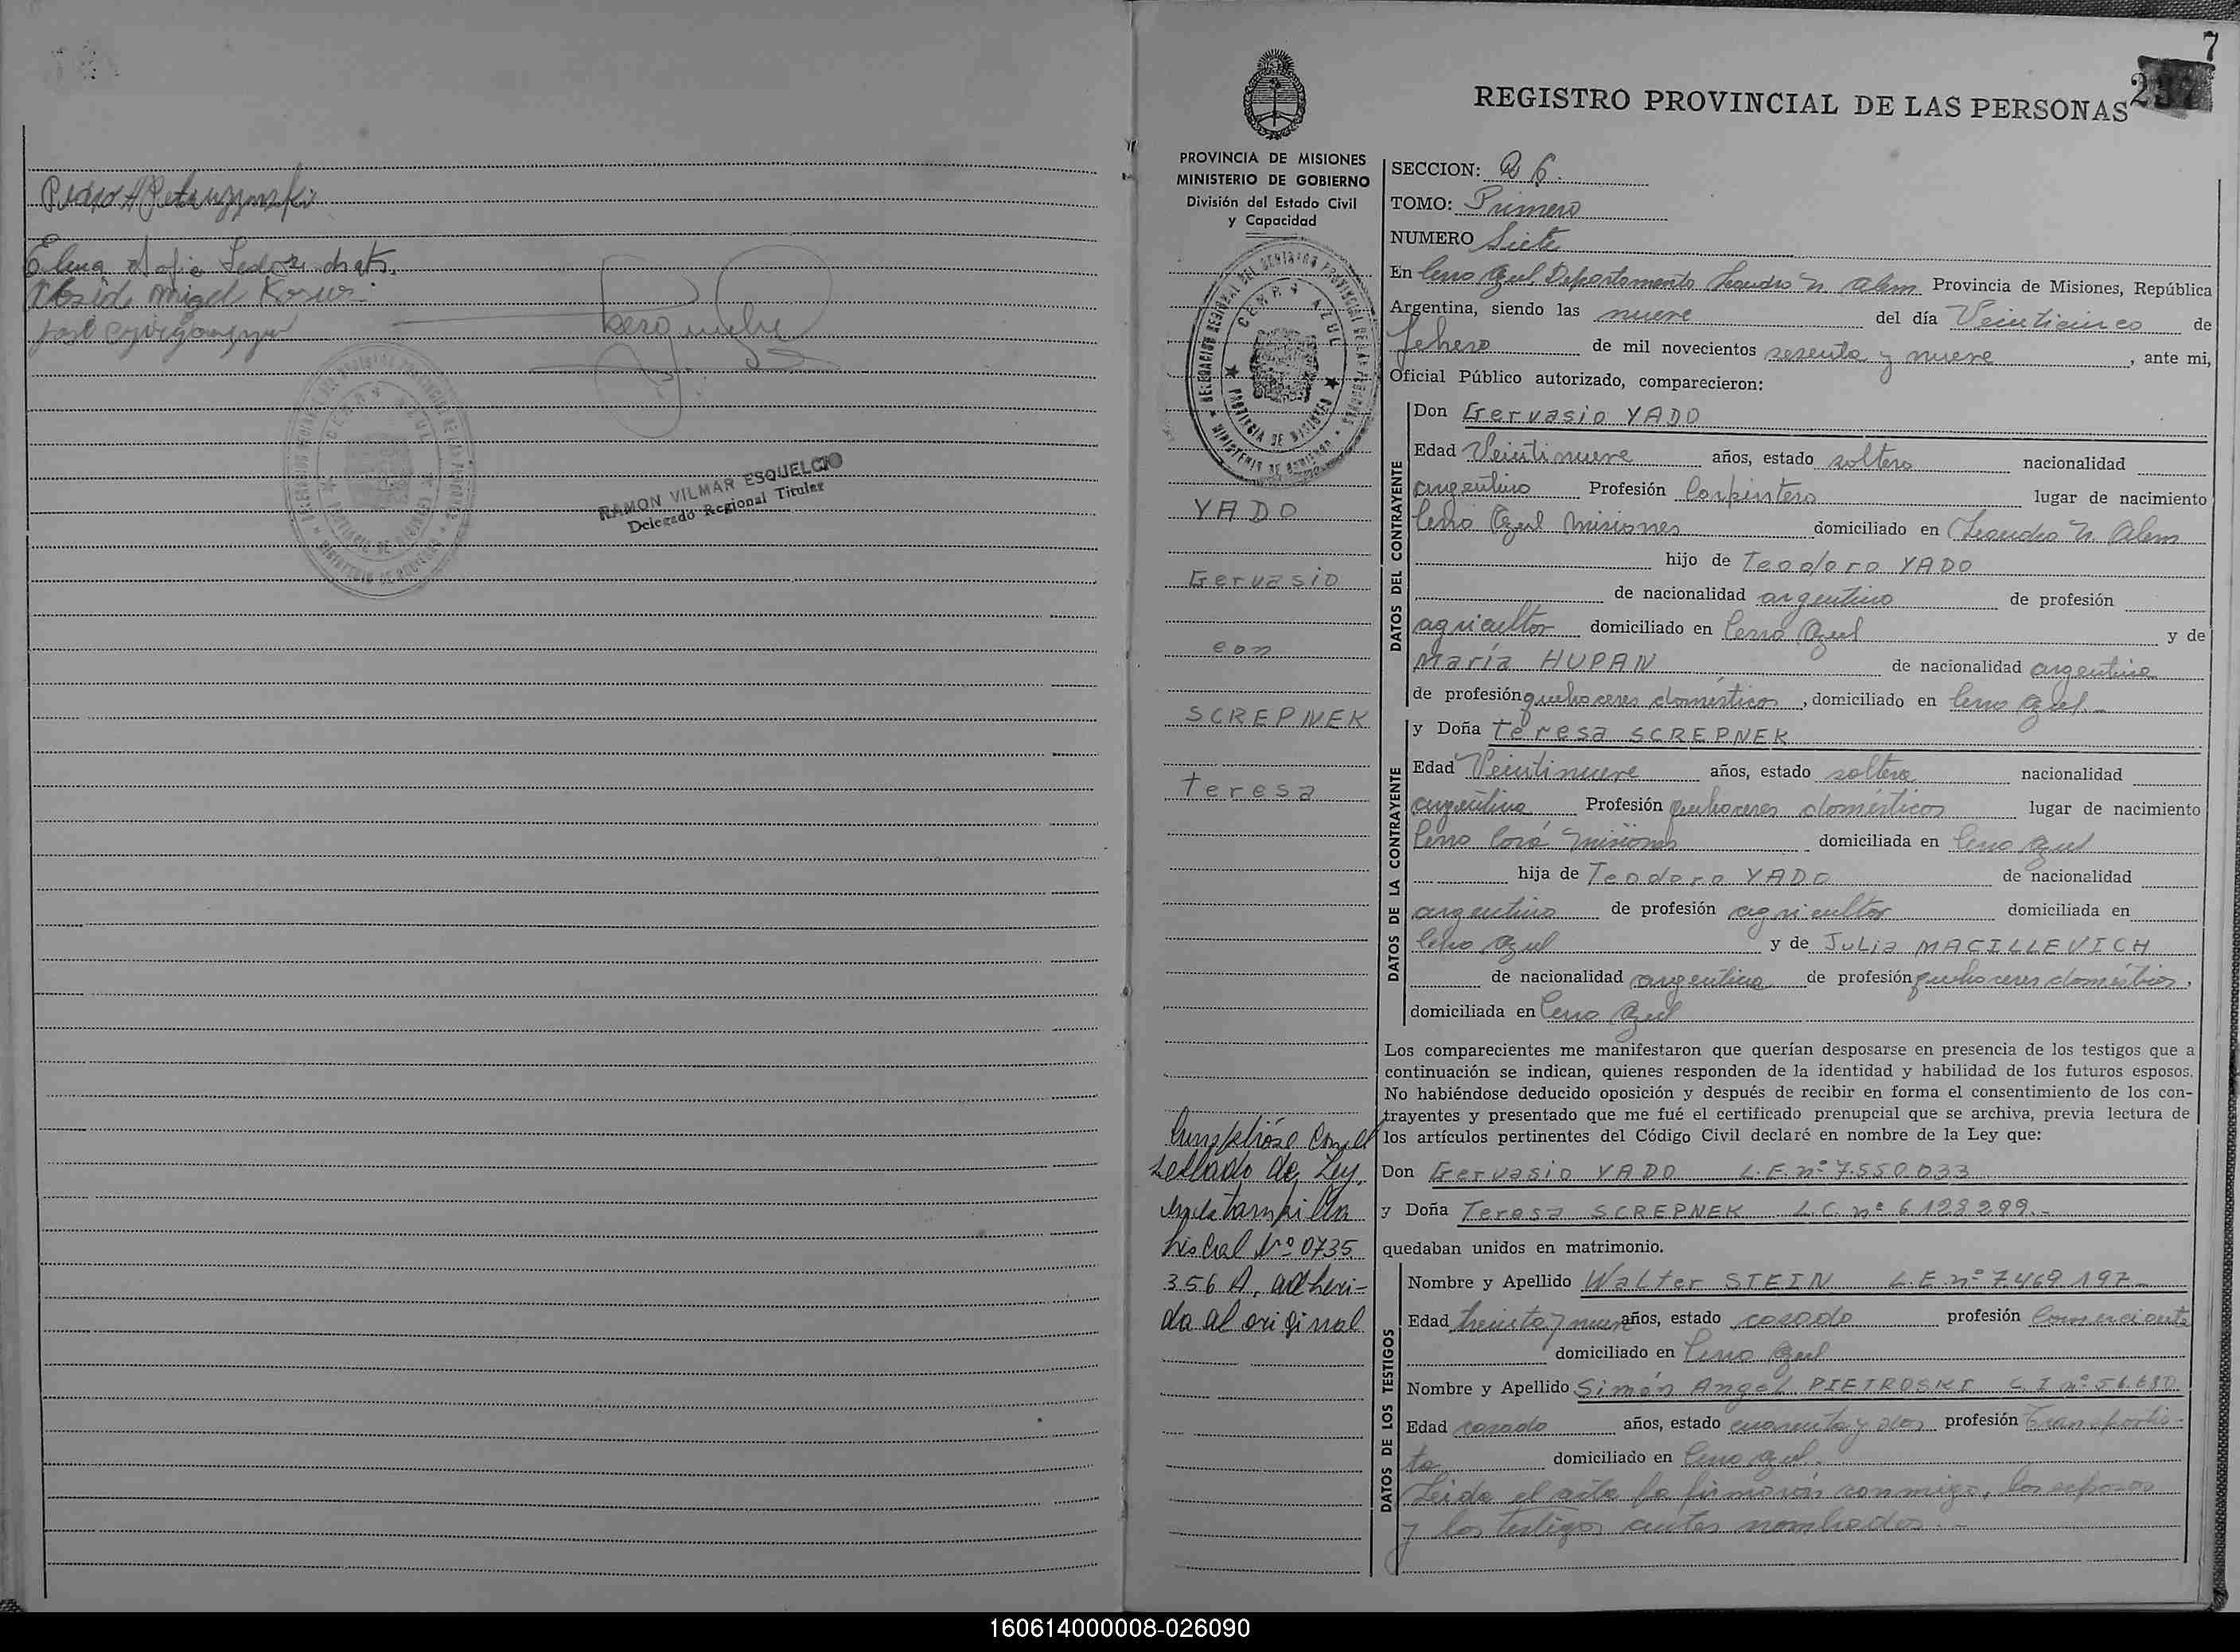 Elena Sofia
RAMON VILMAR ESQUELCIO
Delegado Regional Titular
7
REGISTRO PROVINCIAL DE LAS PERSONAS
PROVINCIA DE MISIONES
MINISTERIO DE GOBIERNO
División del Estado Civil
y Capacidad
YADO
Gervasio
con
SCREPNEK
Teresa
Cumplióse con el
sellado de Ley,
estampilla
fiscal Nº 0735
356 A, adheri-
da al original
SECCION:
TOMO: Primero
NUMERO Siete
En Cerro Azul, Departamento Leandro N. Alem Provincia de Misiones, República
Argentina, siendo las nueve del día Veinticinco de
febrero de mil novecientos sesenta y nueve, ante mi,
Oficial Público autorizado, comparecieron:
DATOS DEL CONTRAYENTE
Don Gervasio YADO
Edad Veintinueve años, estado soltero nacionalidad
argentino Profesión Carpintero lugar de nacimiento
Cerro Azul Misiones domiciliado en Leandro N. Alem
hijo de Teodoro YADO
de nacionalidad argentino de profesión
agricultor domiciliado en Cerro Azul y de
María HUPAN de nacionalidad argentina
de profesión quehaceres domésticos, domiciliado en Cerro Azul -
DATOS DE LA CONTRAYENTE
y Doña Teresa SCREPNEK
Edad Veintinueve años, estado soltera nacionalidad
argentina Profesión quehaceres domésticos lugar de nacimiento
Cerro Corá Misiones domiciliada en Cerro Azul
hija de Teodoro YADO de nacionalidad
argentino de profesión agricultor domiciliada en
Cerro Azul y de Julia MACILLEVICH
de nacionalidad argentina de profesión quehaceres domésticos,
domiciliada en Cerro Azul
Los comparecientes me manifestaron que querían desposarse en presencia de los testigos que a
continuación se indican, quienes responden de la identidad y habilidad de los futuros esposos.
No habiéndose deducido oposición y después de recibir en forma el consentimiento de los con-
trayentes y presentado que me fué el certificado prenupcial que se archiva, previa lectura de
los artículos pertinentes del Código Civil declaré en nombre de la Ley que:
Don Gervasio YADO L.E. nº 7.550.033
y Doña Teresa SCREPNEK L.C. nº 6.123.299.-
quedaban unidos en matrimonio.
DATOS DE LOS TESTIGOS
Nombre y Apellido Walter STEIN L.E nº 7.469.197-
Edad treinta y nueve años, estado casado profesión Comerciante
domiciliado en Cerro Azul
Nombre y Apellido Simón Angel PIETROSKI C.I nº 56.680
Edad casado años, estado cuarenta y dos profesión Transportis-
ta domiciliado en Cerro Azul.
Leida el acta la firmarón conmigo, los esposos
y los testigos antes nombrados.-
160614000008-026090